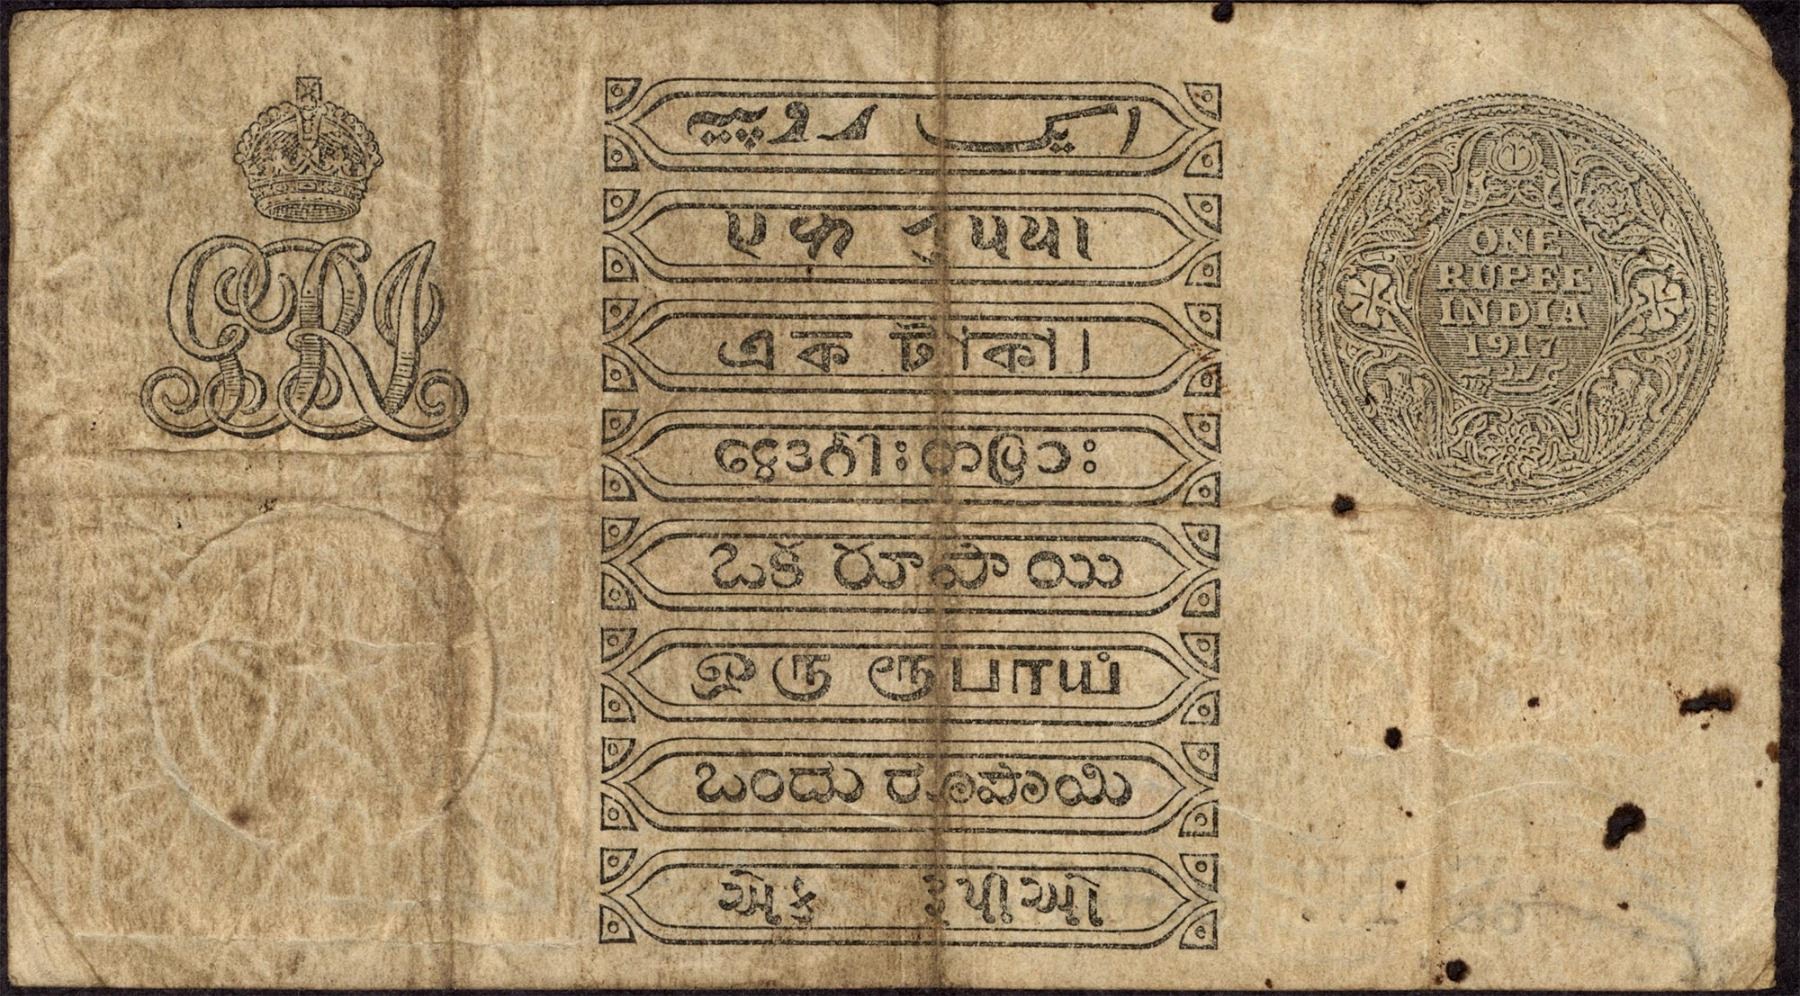 GRI
ایک روپیہ
एक रुपया
এক টাকা।
ငွေဒင်္ဂါးတပြား
ఒక రూపాయి
ஒரு ரூபாய்
ಒಂದು ರೂಪಾಯಿ
એક રૂપીઓ
ONE
RUPEE
INDIA
1917